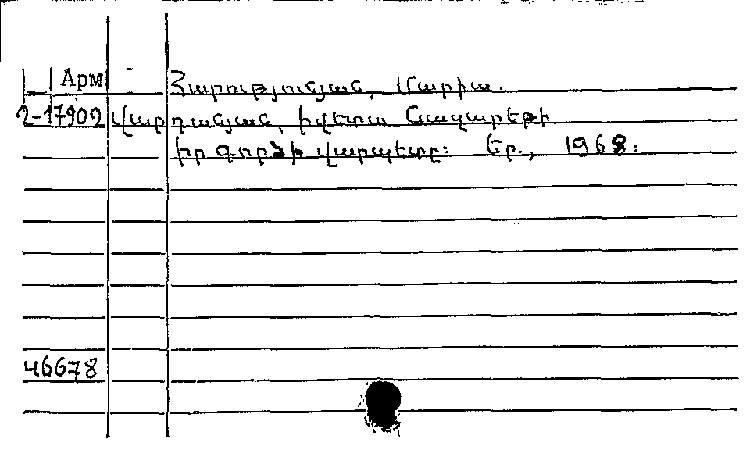 Арм Հարությունյան, Մարիա.
2-17902 Վարդանյան, Իվետա Նազարեթի
Իր գործի վարպետը: Եր., 1968:
46678